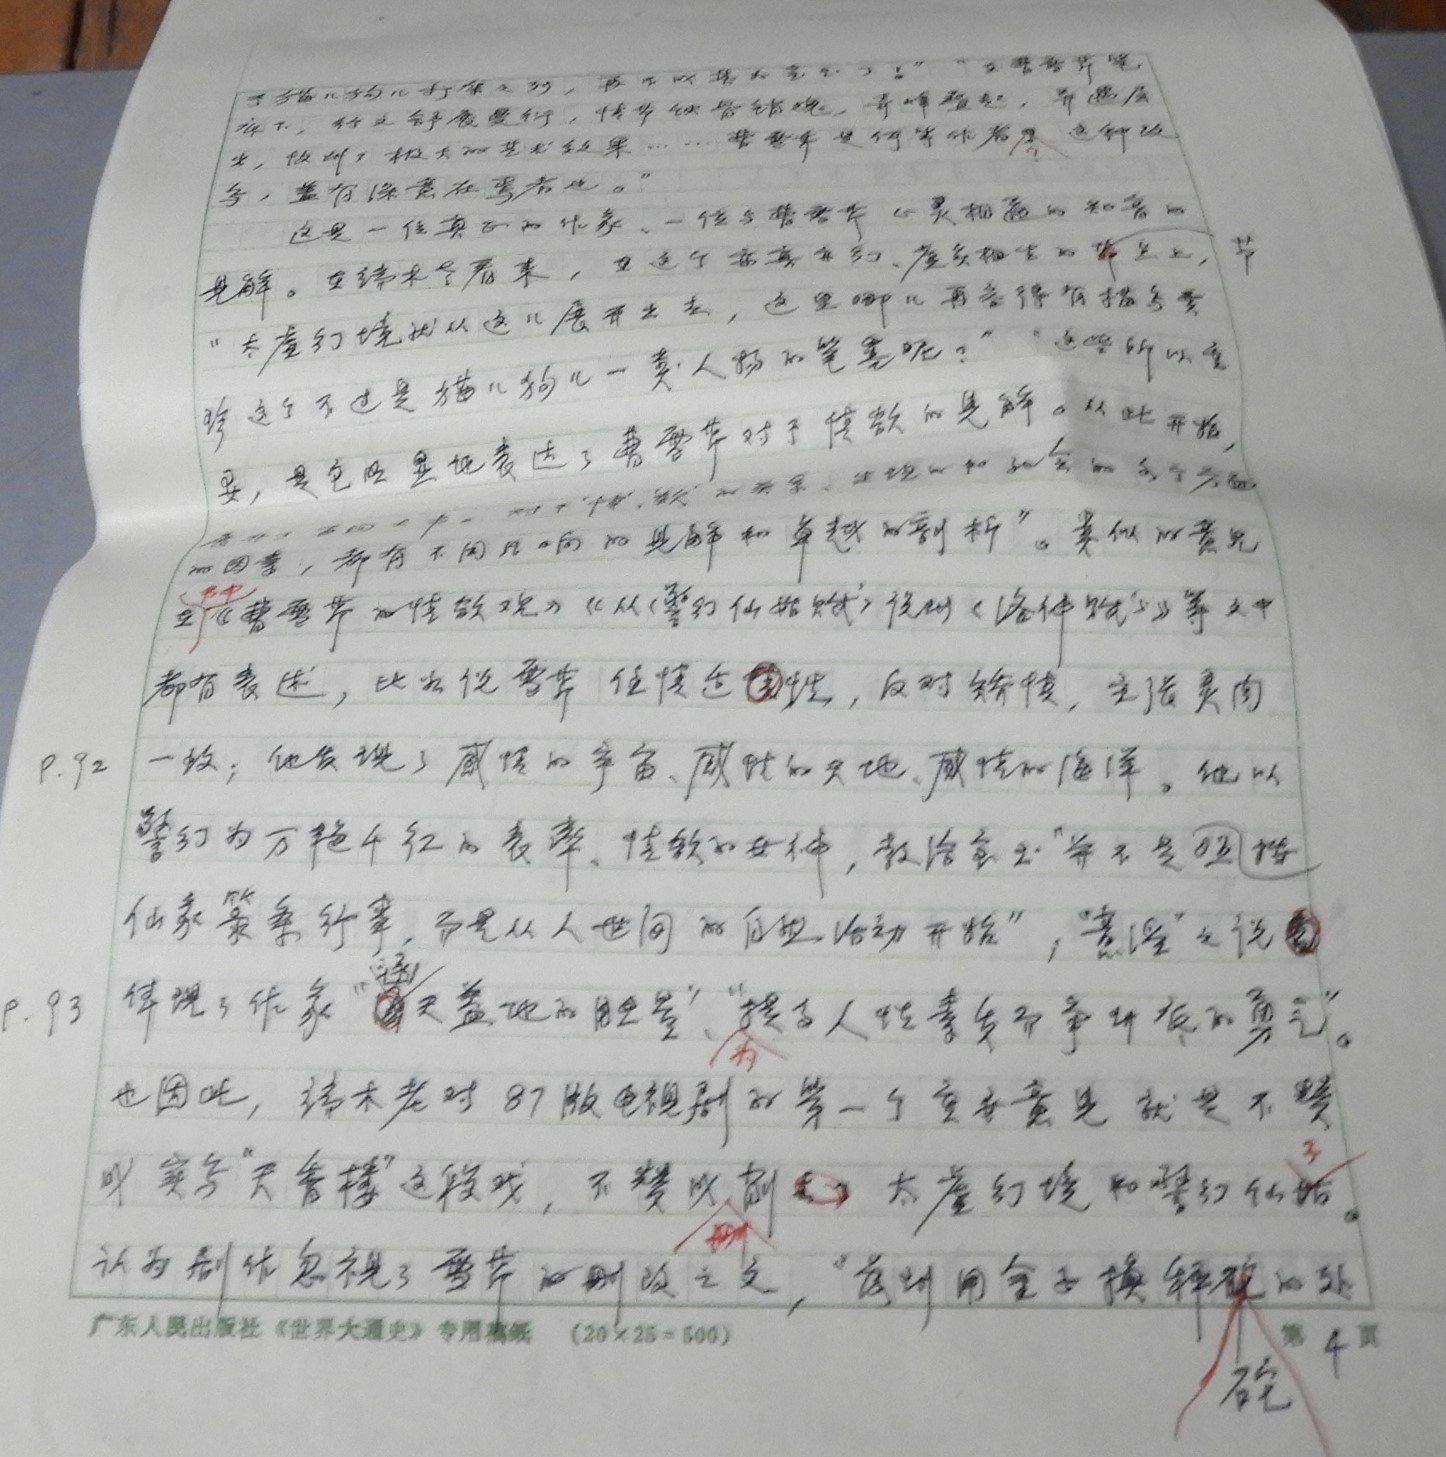 于猫儿狗儿打架之列，再不以其为意也了！” “在曹雪芹笔
底下，行文舒展曼衍，情节跌宕错综，奇峰叠起，异趣层
出，收到了极大的艺术效果……曹雪芹是何等作者？这种改
写，盖有深意在焉者也。”
这是一位真正的作家、一位与曹雪芹心灵相通的知音的
见解。在端木老看来，在这个亦真亦幻、虚实相生的节点上，
“太虚幻境就从这儿展开出去，这里哪儿再容得有描写贾
珍这个不过是猫儿狗儿一类人物的笔墨呢？”“这些所以重
要，是它明显地表达了曹雪芹对于情欲的见解。从此开始，
对于‘情’‘欲’的关系、
的因素，都有不同凡响的见解和卓越的剖析”。类似的意见
在书中《曹雪芹的情欲观》《从〈警幻仙姑赋〉说到〈洛神赋〉》等文中
都有表述，比如说雪芹任情适性，反对矫情，主张灵肉
P.92 一致；他发现了感情的宇宙、感情的天地、感情的海洋。他以
警幻为万艳千红的表率、情欲的女神，教给宝玉“并不是按照
仙家箓条行事，而是从人世间的自然活动开始”，“意淫”之说
P.93 体现了作家“瞒天盖地的胆量”、“为提高人性素质而争到底的勇气”。
也因此，端木老对87版电视剧的第一个重要意见就是不赞
成实写“天香楼”这段戏，不赞成删削太虚幻境和警幻仙子。
认为剧作忽视了雪芹的删改之文，“落到用金子换秤砣的处
砣
广东人民出版社《世界大通史》专用稿纸 (20×25=500) 第4页